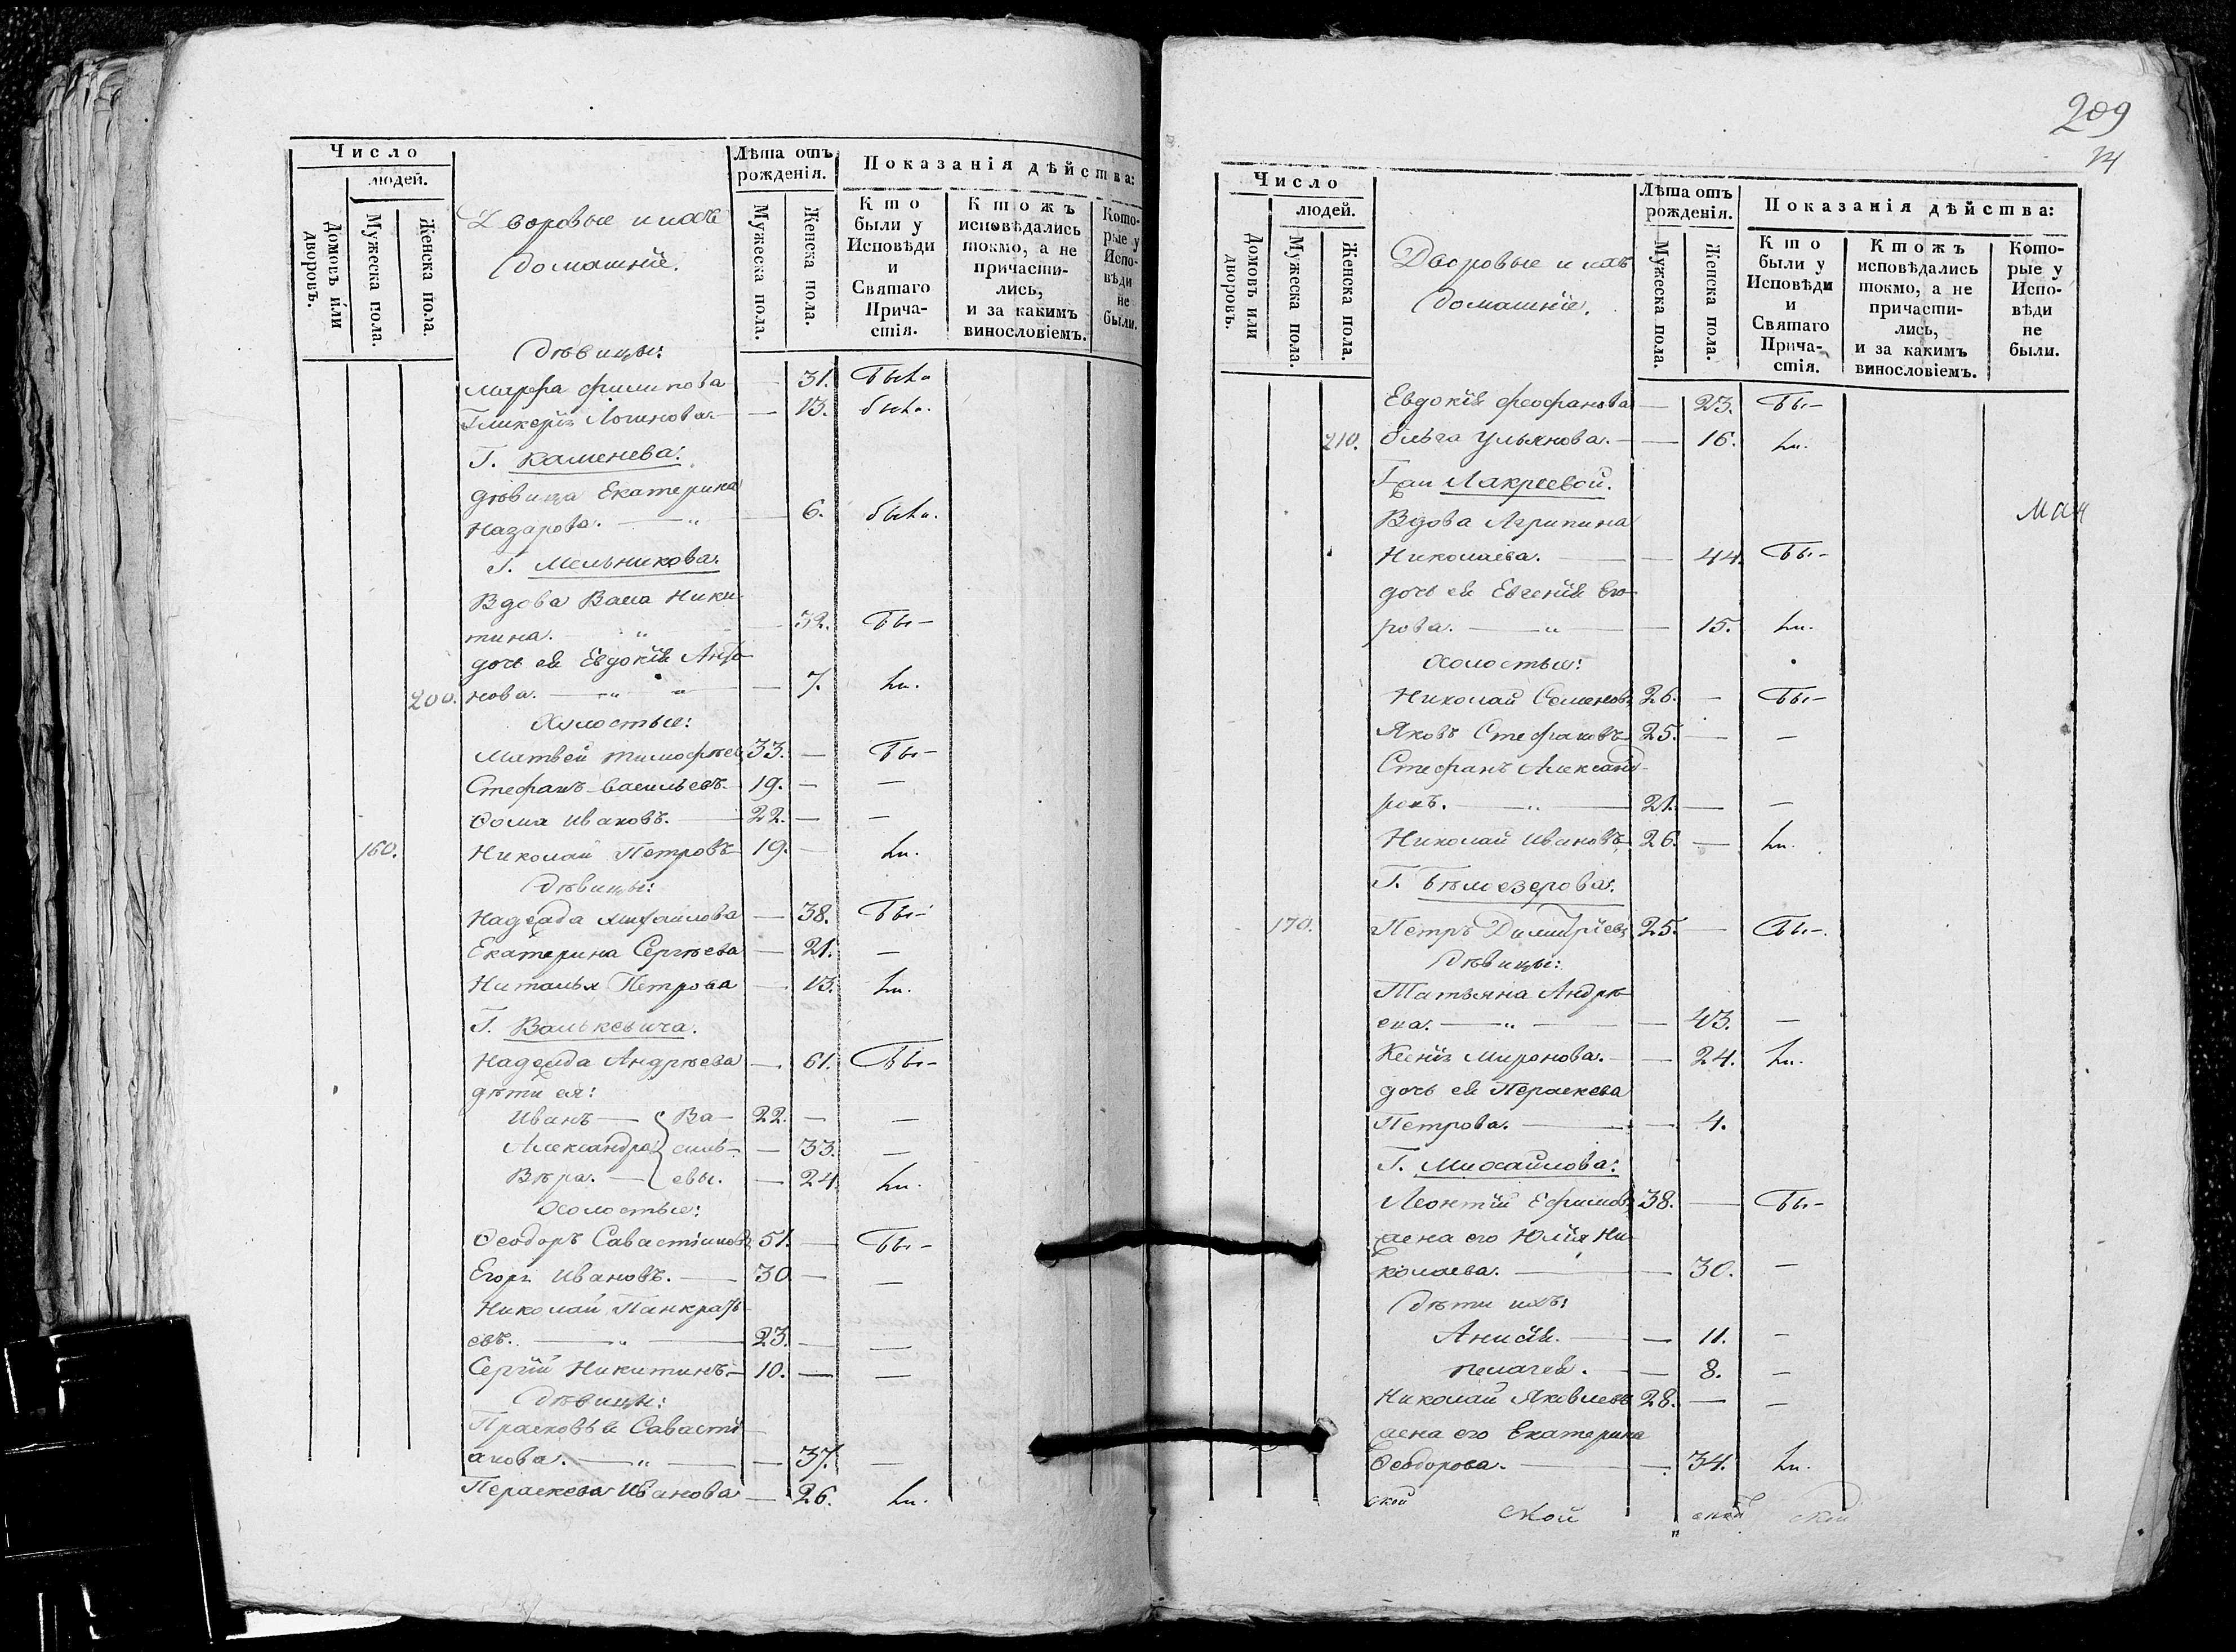 Число
людей.
Домовъ или дворовъ.
Мужеска пола.
Женска пола.
Дворовые и ихъ
домашніе.
Лѣта отъ
рожденія.
Мужеска пола.
Женска пола.
Показанія дѣйства:
Кто
были у
Исповѣди
и
Святаго
Прича-
стія.
Ктожъ
исповѣдались
токмо, а не
причасти-
лись,
и за какимъ
винословіемъ.
Кото-
рые у
Испо-
вѣди
не
были.
Дѣвицы:
Марфа Филипова — 31. была
Гликерія Логинова — 13. была.
Г. Каменева:
дѣвица Екатерина
Назарова. — „ — 6. была.
Г. Мельникова.
Вдова Васа Ники-
тина. „ — 32. бы-
дочь ея Евдокія
200. нова. — „ „ — 7. ли.
Холостые:
Матвей Тимофѣев 33. — бы-
Стефанъ Васильевъ. 19. — —
Ѳома Ивановъ. — 22. — —
160. Николай Петровъ 19. — ли.
Дѣвицы:
Надежда Михайлова — 38. бы-
Екатерина Сергѣева — 21. —
Наталья Петрова — 13. ли.
Г. Валькевича.
Надежда Андрѣева — 61. бы-
дѣти ея:
Иванъ — Ва- 22. — —
Александра силь- — 33. —
Вѣра. — евы. — 24. ли.
Холостые:
Ѳеодоръ Савастіановъ 51. — бы-
Егоръ Ивановъ. — 30 — —
Николай Панкратъ-
евъ. — „ — 23. — —
Сергій Никитинъ. — 10. — —
Дѣвицы:
Прасковья Савасті-
анова. — „ — 37. —
Параскева Иванова — 26. ли.
209
Число
людей.
Домовъ или дворовъ.
Мужеска пола.
Женска пола.
Дворовые и ихъ
домашніе.
Лѣта отъ
рожденія.
Мужеска пола.
Женска пола.
Показанія дѣйства:
Кто
были у
Исповѣди
и
Святаго
Прича-
стія.
Ктожъ
исповѣдались
токмо, а не
причасти-
лись,
и за какимъ
винословіемъ.
Кото-
рые у
Испо-
вѣди
не
были.
Евдокія Феофанова — 23. бы-
210. Ольга Ульянова. — 16. ли.
Гжи Лакреевой.
Вдова Агрипина
Николаева. — 44. бы-
дочь ея Евгенія Его-
рова. — „ — 15. ли.
Холостые:
Николай Семеновъ 26. — бы-
Яковъ Стефановъ 25. — —
Стефанъ Александ-
ровъ. — „ — 21. — —
Николай Ивановъ 26. — ли.
Г. Бѣлоезерова.
170. Петръ Димитріевъ 25. — бы-.
Дѣвицы:
Татьяна Андрѣ-
ева. — „ — 43. —
Ксенія Миронова. — 24. ли.
дочь ея Параскева
Петрова. — 4.
Г. Михайлова:
Леонтій Ефимовъ 38. — бы-
жена его Юлія Ни-
колаева. — 30. —
Дѣти ихъ:
Анисія. — 11. —
Пелагея. — 8. —
Николай Яковлевъ 28. — —
жена его Екатерина
Ѳеодорова. — 34. ли.
ской
ской ской ской